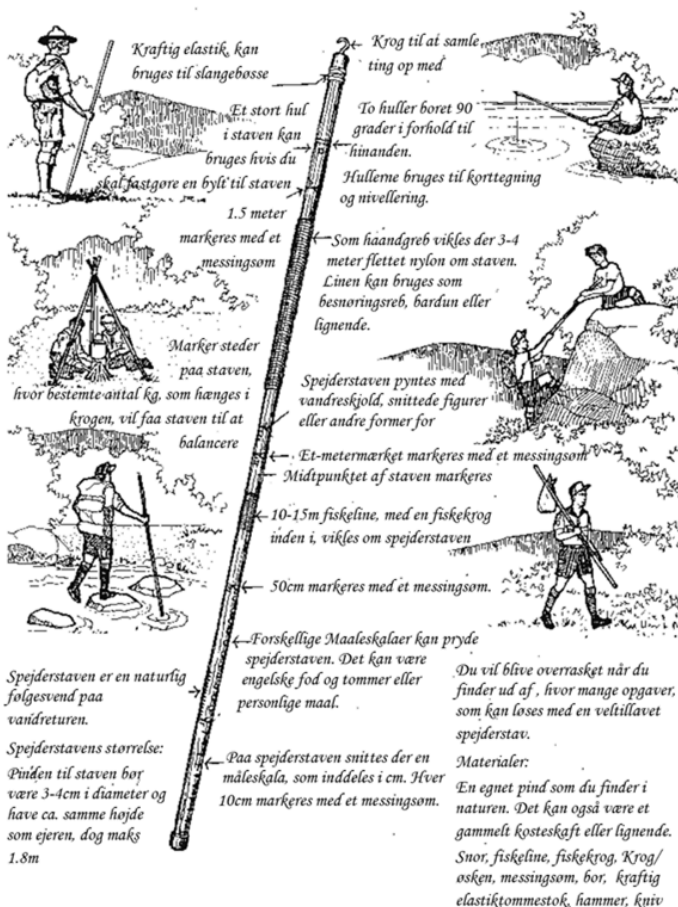 Kraftig elastik, kan
bruges til slangebøsse
Krog til at samle
ting op med
Et stort hul
i staven kan
bruges hvis du
skal fastgøre en bylt til staven
To huller boret 90
grader i forhold til
hinanden.
Hullerne bruges til korttegning
og nivellering.
1.5 meter
markeres med et
messingsøm
Som haandgreb vikles der 3-4
meter flettet nylon om staven.
Linen kan bruges som
besnøringsreb, bardun eller
lignende.
Marker steder
paa staven,
hvor bestemte antal kg, som hænges i
krogen, vil faa staven til at
balancere
Spejderstaven pyntes med
vandreskjold, snittede figurer
eller andre former for
Et-metermærket markeres med et messingsøm
Midtpunktet af staven markeres
10-15m fiskeline, med en fiskekrog
inden i, vikles om spejderstaven
50cm markeres med et messingsøm.
Forskellige Maaleskalaer kan pryde
spejderstaven. Det kan være
engelske fod og tommer eller
personlige maal.
Paa spejderstaven snittes der en
måleskala, som inddeles i cm. Hver
10cm markeres med et messingsøm.
Spejderstaven er en naturlig
følgesvend paa
vandreturen.
Spejderstavens størrelse:
Pinden til staven bør
være 3-4cm i diameter og
have ca. samme højde
som ejeren, dog maks
1.8m
Du vil blive overrasket når du
finder ud af , hvor mange opgaver,
som kan løses med en veltillavet
spejderstav.
Materialer:
En egnet pind som du finder i
naturen. Det kan også være et
gammelt kosteskaft eller lignende.
Snor, fiskeline, fiskekrog, Krog/
øsken, messingsøm, bor, kraftig
elastiktommestok, hammer, kniv